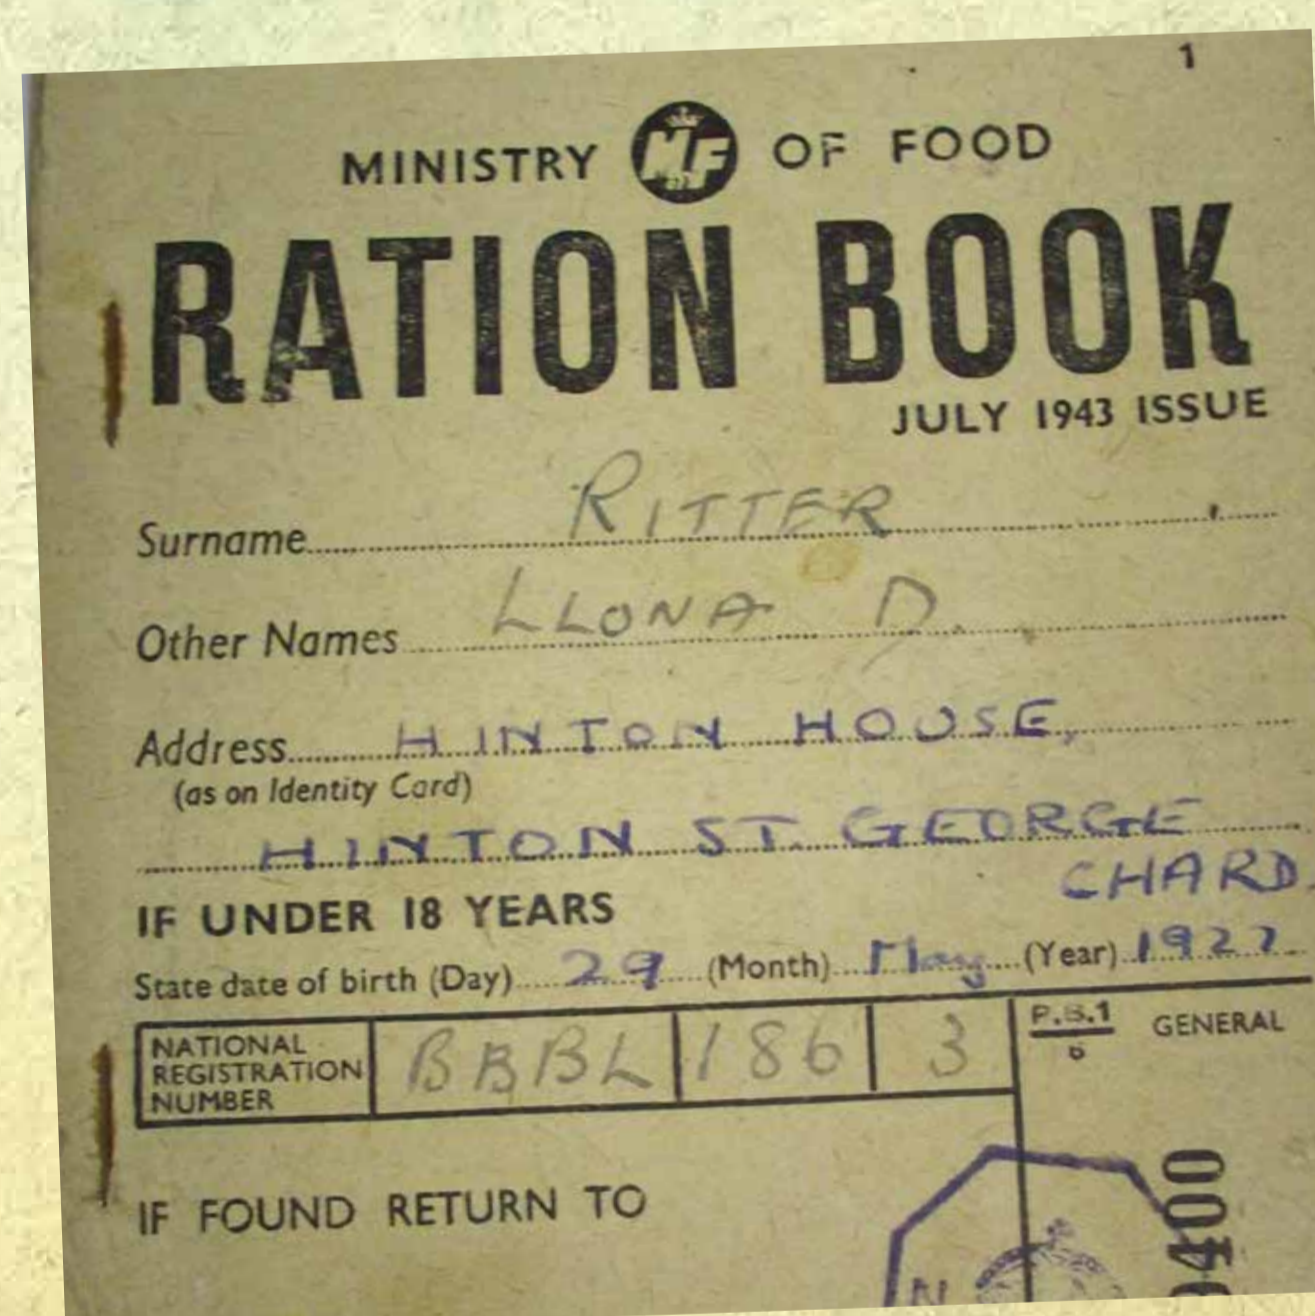 1
MINISTRY MF OF FOOD
RATION BOOK
JULY 1943 ISSUE
Surname RITTER
Other Names LLONA D.
Address HINTON HOUSE,
(as on Identity Card)
HINTON ST. GEORGE
CHARD
IF UNDER 18 YEARS
State date of birth (Day) 29 (Month) May (Year) 1927
NATIONAL REGISTRATION NUMBER BBBL 186 3
R.B.1
6
GENERAL
IF FOUND RETURN TO
N
400